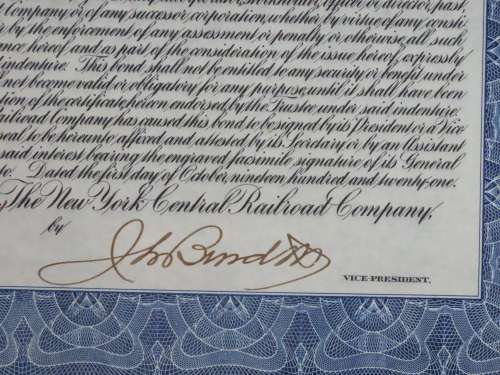 officer or director, past,
Company or of any successor corporation, whether by virtue of any consti-
by the enforcement of any assessment or penalty or otherwise, all such
ance hereof and as part of the consideration of the issue hereof, expressly
indenture. This bond shall not be entitled to any security or benefit under
not become valid or obligatory for any purpose, until it shall have been
tion of the certificate hereon endorsed by the Trustee under said indenture.
ailroad Company has caused this bond to be signed by its President or a Vice
seal to be hereunto affixed and attested by its Secretary or by an Assistant
said interest bearing the engraved facsimile signature of its General
to. Dated the first day of October nineteen hundred and twenty-one.
The New York Central Railroad Company,
by
VICE-PRESIDENT.